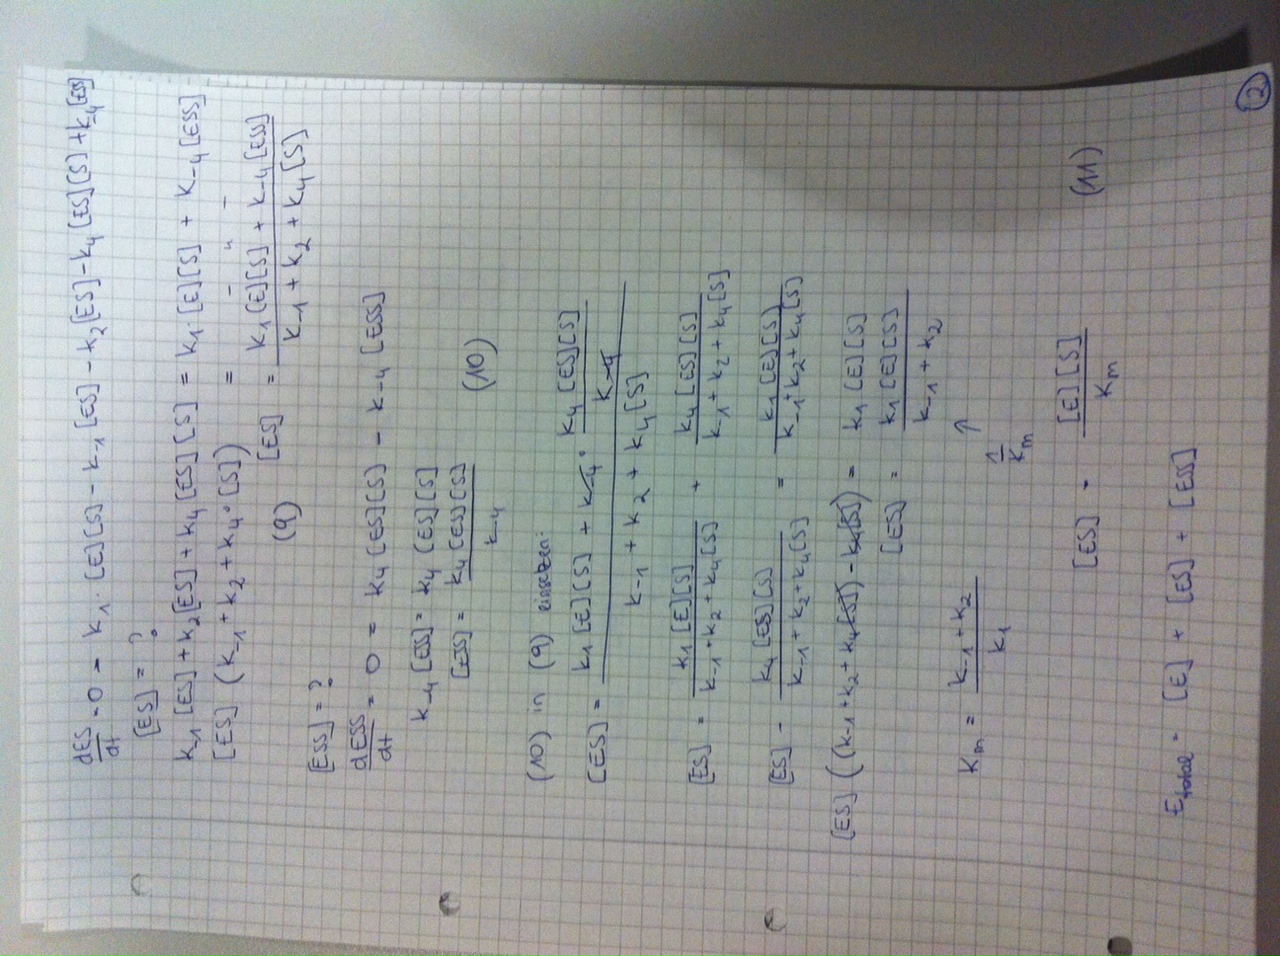 dES/dt = 0 = k₁·[E][S] - k₋₁[ES] - k₂[ES] - k₄[ES][S] + k₋₄[ESS]
[ES] = ?
k₋₁[ES] + k₂[ES] + k₄[ES][S] = k₁·[E][S] + k₋₄[ESS]
[ES] (k₋₁ + k₂ + k₄·[S]) = - " -
(9) [ES] = k₁[E][S] + k₋₄[ESS] / k₋₁ + k₂ + k₄[S]
[ESS] = ?
dESS/dt = 0 = k₄[ES][S] - k₋₄[ESS]
k₋₄[ESS] = k₄[ES][S]
[ESS] = k₄[ES][S] / k₋₄ (10)
(10) in (9) einsetzen:
[ES] = k₁[E][S] + k₋₄ · k₄[ES][S] / k₋₄ / k₋₁ + k₂ + k₄[S]
[ES] = k₁[E][S] / k₋₁ + k₂ + k₄[S] + k₄[ES][S] / k₋₁ + k₂ + k₄[S]
[ES] - k₄[ES][S] / k₋₁ + k₂ + k₄[S] = k₁[E][S] / k₋₁ + k₂ + k₄[S]
[ES] ((k₋₁ + k₂ + k₄[S]) - k₄[S]) = k₁[E][S]
[ES] = k₁[E][S] / k₋₁ + k₂
Kₘ = k₋₁ + k₂ / k₁ ↗
1/Kₘ
[ES] = [E][S] / Kₘ (11)
Etotal = [E] + [ES] + [ESS]
2